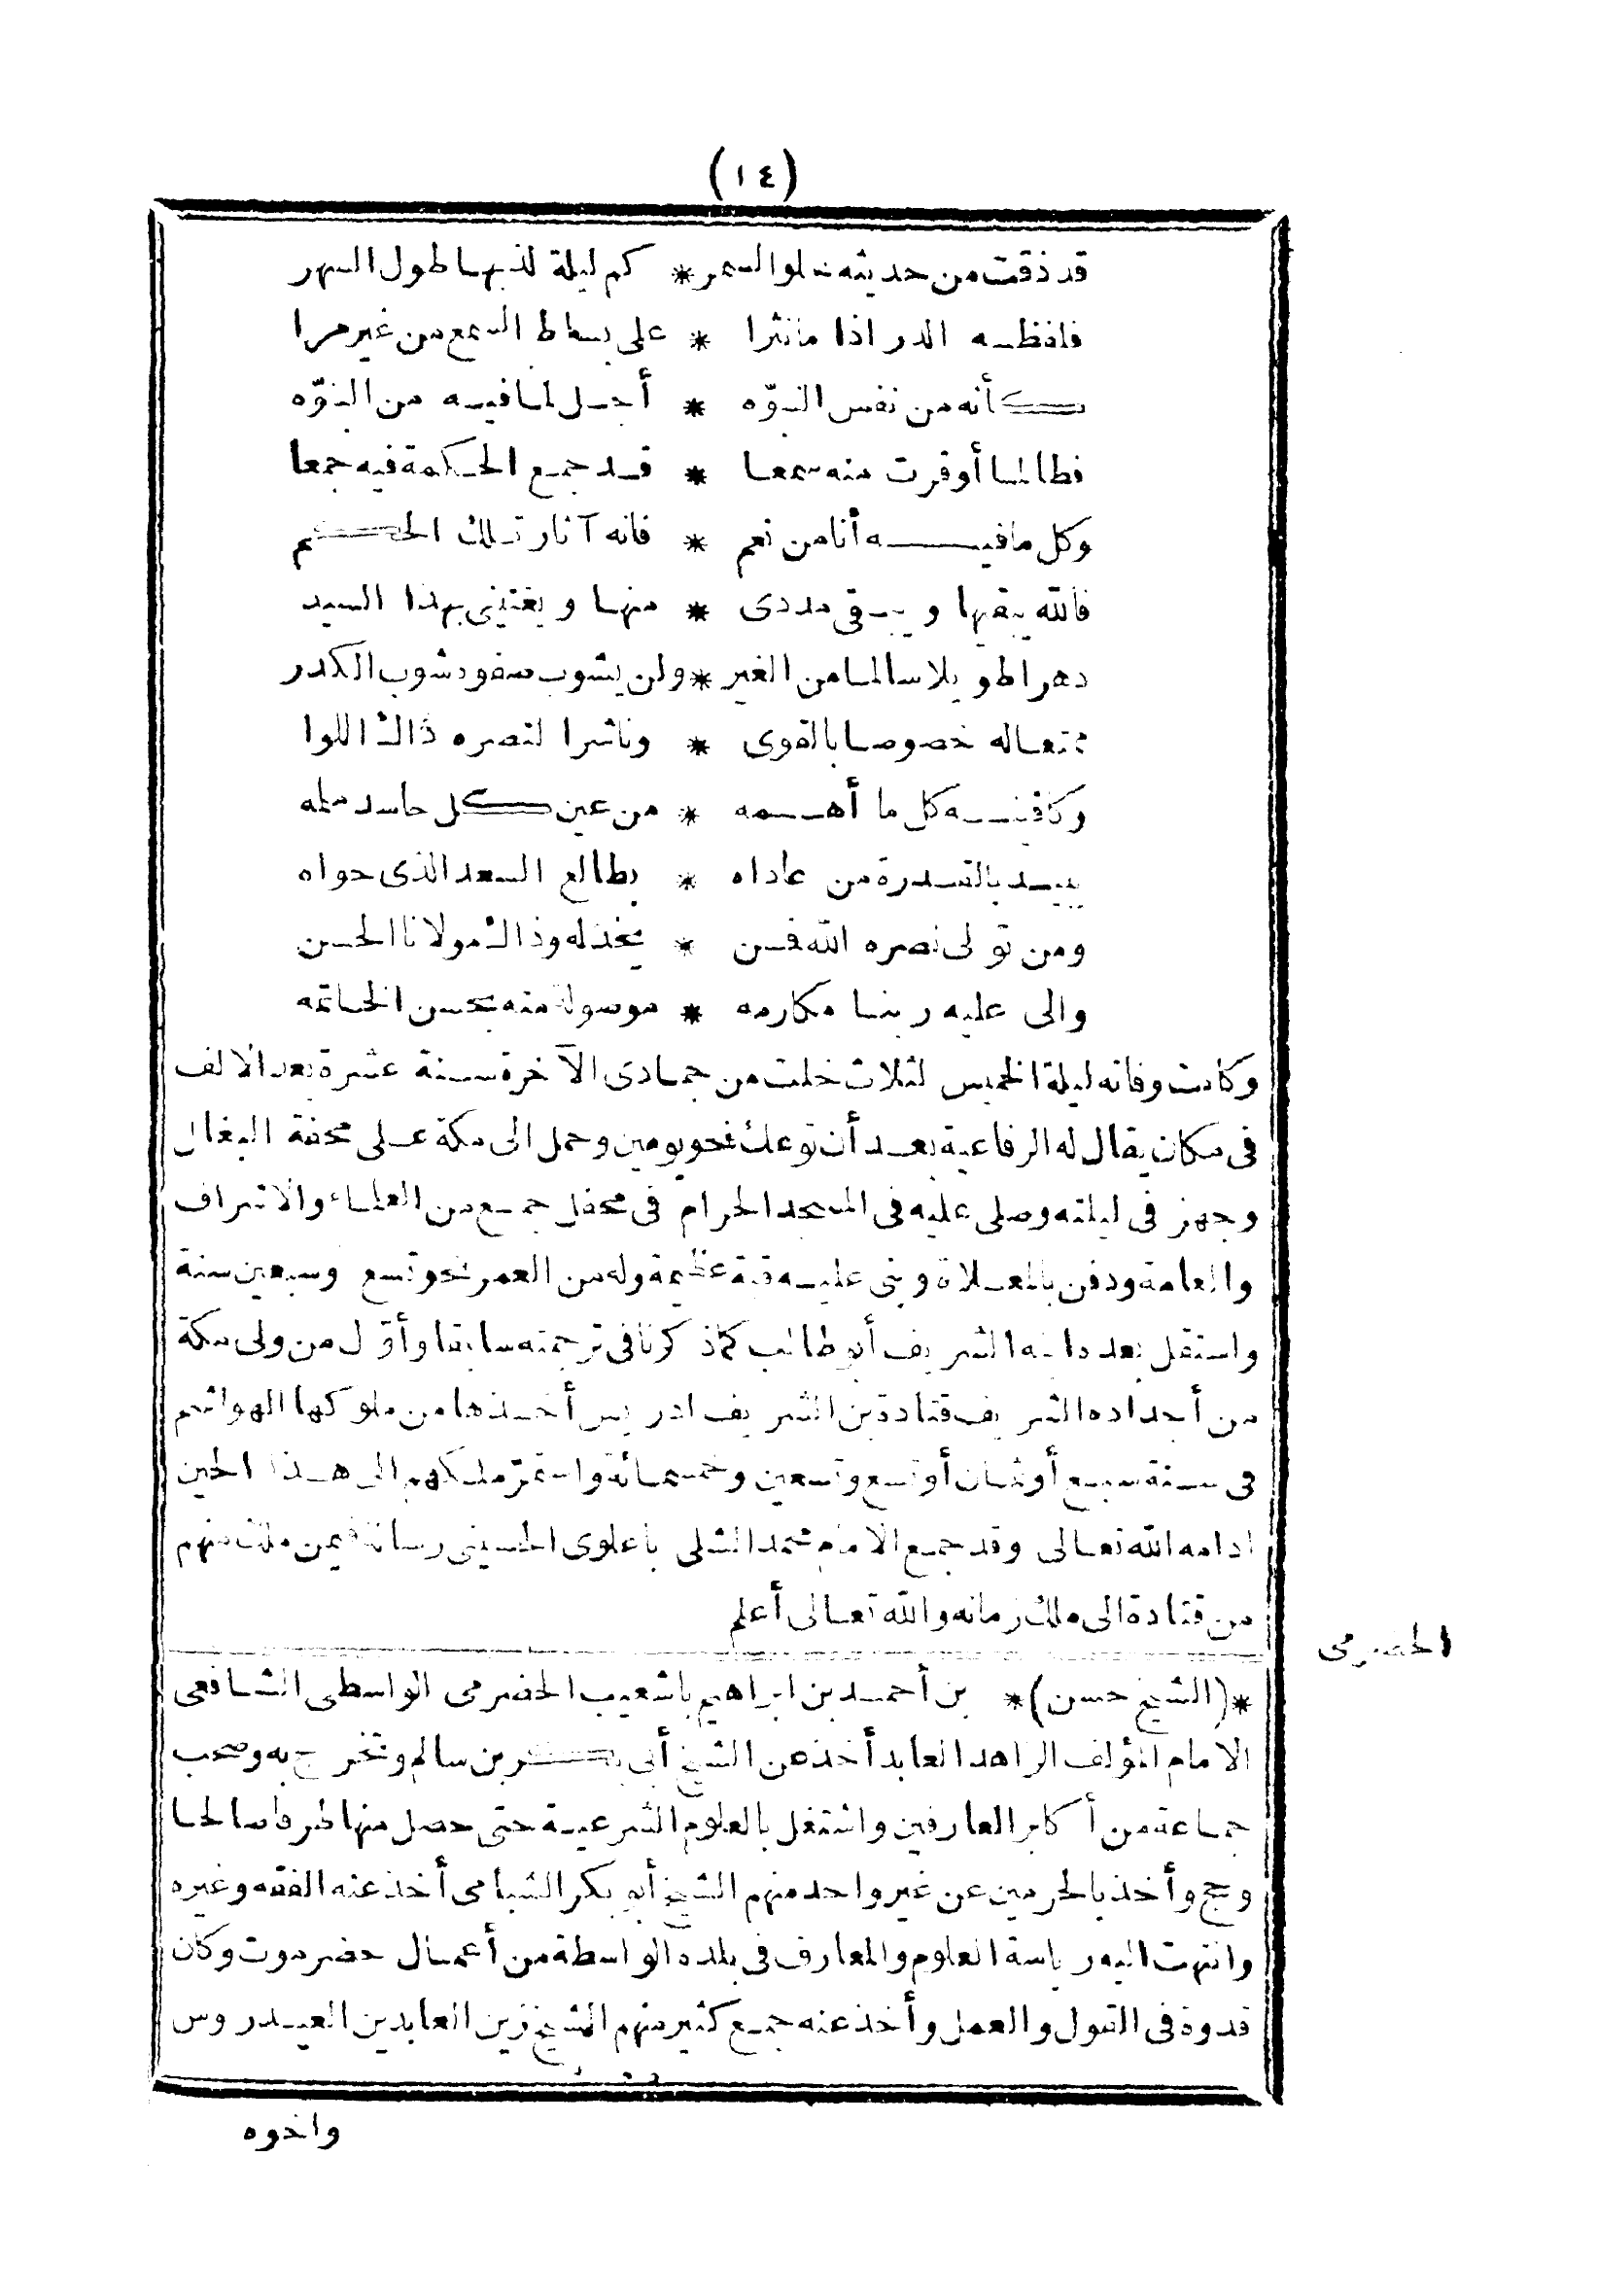 (١٤)
قد ذقت من حديثه حلو السمر * كم ليلة لذ بها طول السهر
فلفظه الدر اذا ما نثرا * على بساط السمع من غير مرا
كأنه من نفس النبوّه * أجل لما فيه من البنوّه
فطالما أوقرت منه سمعا * قد جمع الحكمة فيه جمعا
وكل ما فيه أنا من نعم * فانه آثار تلك الحكم
فالله يبقيها ويبقى مددى * منها ويغنينى بهذا السيد
دهرا طويلا سالما من الغير * ولن يشوب صفوه شوب الكدر
ممتعا له خصوصا بالقوى * وناشرا لنصره ذاك اللوا
وكافيه كل ما أهمه * من عين كل حاسد ملمه
يبيد بالقدرة من عاداه * بطالع السعد الذى حواه
ومن تولى نصره الله فمن * يخذله وذاك مولانا الحسن
والى عليه ربنا مكارمه * موصولة منه بحسن الخاتمه
وكانت وفاته ليلة الخميس لثلاث خلت من جمادى الآخرة سنة عشرة بعد الالف
فى مكان يقال له الرفاعية بعد أن توعك نحو يومين وحمل الى مكة على محفة البغال
وجهز فى ليلته وصلى عليه فى المسجد الحرام فى محفل جمع من العلماء والاشراف
والعامة ودفن بالمعلاة وبنى عليه قبة عظيمة وله من العمر نحو تسع وسبعين سنة
واستقل بعده ابنه الشريف أبو طالب كما ذكرنا فى ترجمته سابقا وأوّل من ولى مكة
من أجداده الشريف قتادة بن الشريف ادريس أخذها من ملوكها الهواشم
فى سنة سبع أو ثمان أو تسع وتسعين وخمسمائة واستمرّ ملكهم الى هذا الحين
ادامه الله تعالى وقد جمع الامام محمد الشلى باعلوى الحسينى رسالة فيمن ملك منهم
من قتادة الى ملك زمانه والله تعالى أعلم
الحضرمى
*(الشيخ حسن)* بن أحمد بن ابراهيم باشعيب الحضرمى الواسطى الشافعى
الامام المؤلف الزاهد العابد أخذ عن الشيخ أبى بكر بن سالم وتخرج به وصحب
جماعة من أكابر العارفين واشتغل بالعلوم الشرعية حتى حصل منها طرفا صالحا
وحج وأخذ بالحرمين عن غير واحد منهم الشيخ أبو بكر الشبامى أخذ عنه الفقه وغيره
وانتهت اليه رياسة العلوم والمعارف فى بلده الواسطة من أعمال حضرموت وكان
قدوة فى القول والعمل وأخذ عنه جمع كثير منهم الشيخ زين العابدين العيدروس
واخوه